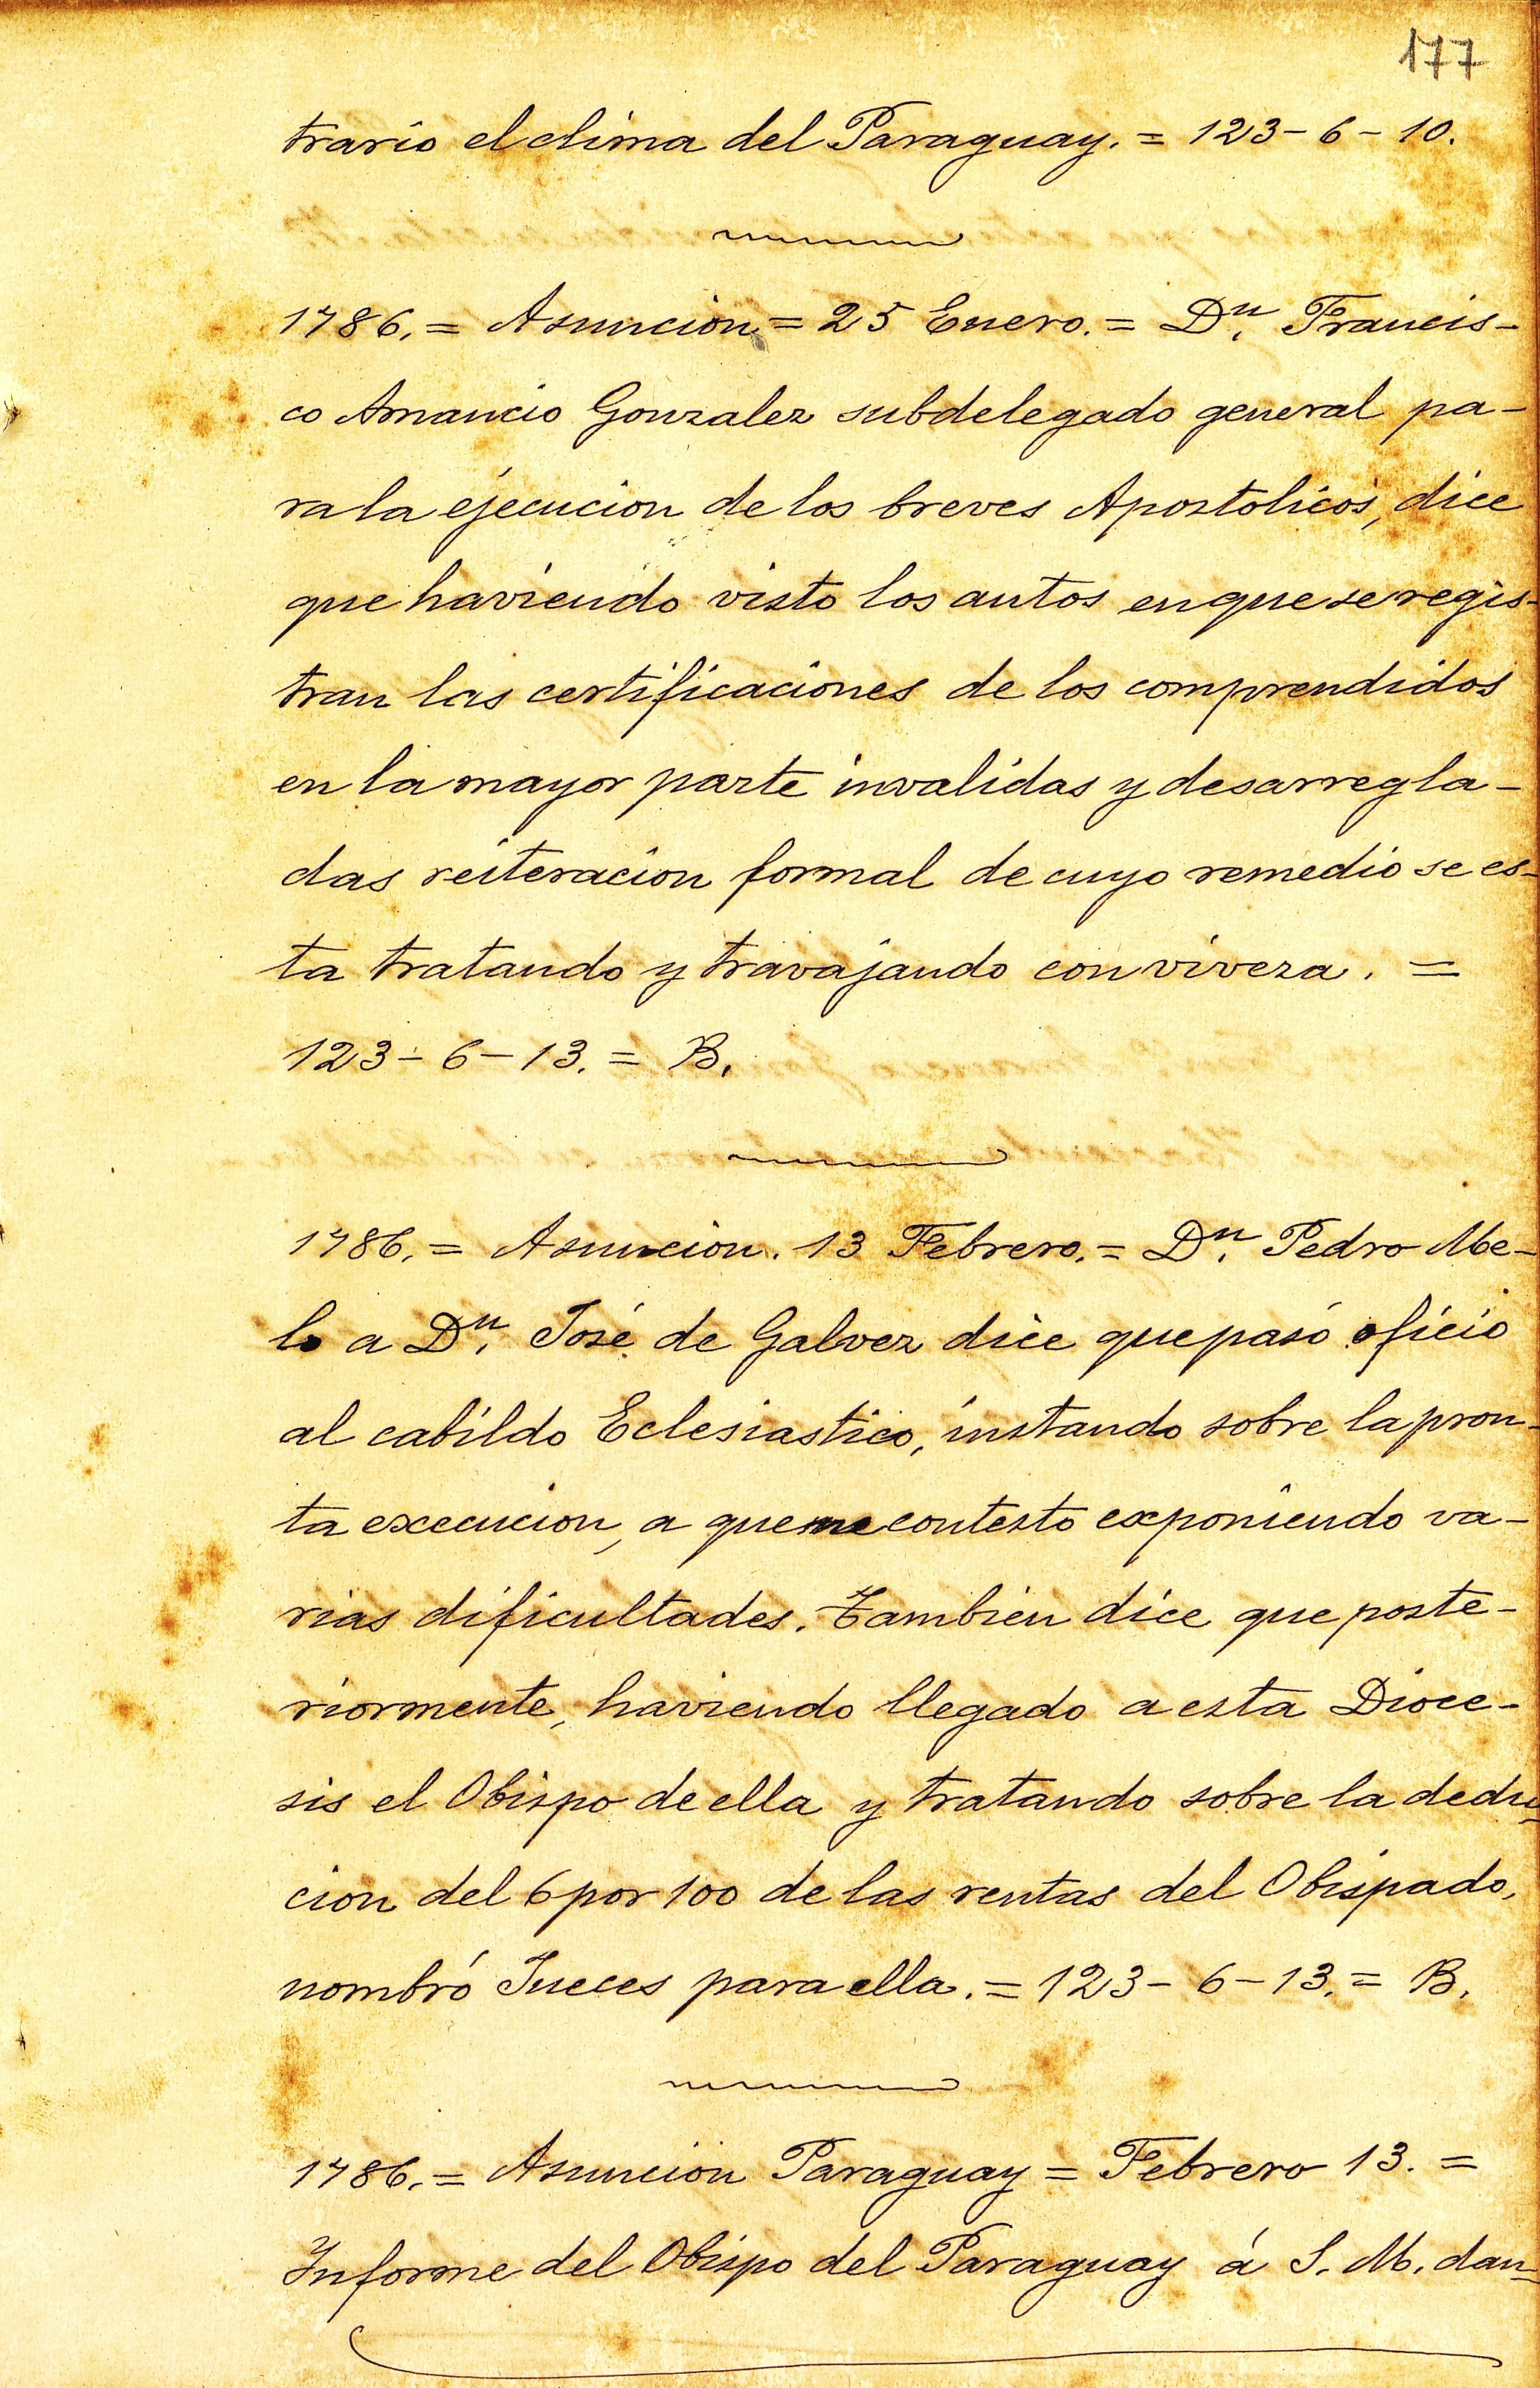 177
trario el clima del Paraguay. = 123-6-10.
1786. = Asuncion = 25 Enero. = Dn. Francis-
co Amancio Gonzalez subdelegado general pa-
ra la ejecucion de los breves Apostolicos, dice
que haviendo visto los autos en que se regis-
tran las certificaciones de los comprendidos
en la mayor parte invalidas y desarregla-
das reiteracion formal de cuyo remedio se es-
ta tratando y travajando con viveza. =
123-6-13. = B.
1786. = Asuncion. 13 Febrero. = Dn. Pedro Me-
lo a Dn. José de Galvez dice que pasó oficio
al cabildo Eclesiastico, instando sobre la pron-
ta execucion, a que me contesto exponiendo va-
rias dificultades. Tambien dice que poste-
riormente, haviendo llegado a esta Dioce-
sis el Obispo de ella y tratando sobre la dedu-
cion del 6 por 100 de las rentas del Obispado,
nombró Jueces para ella. = 123-6-13. = B.
1786. = Asuncion Paraguay = Febrero 13. =
Informe del Obispo del Paraguay á S. M. dan-